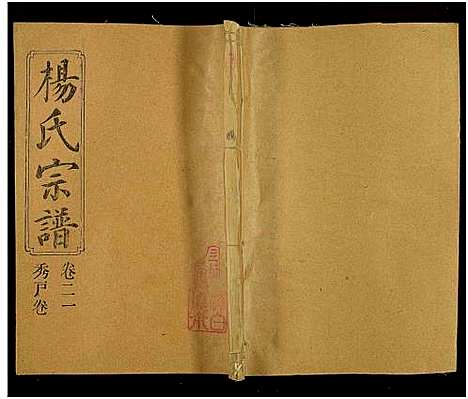 楊氏宗譜
卷二一
秀戸卷